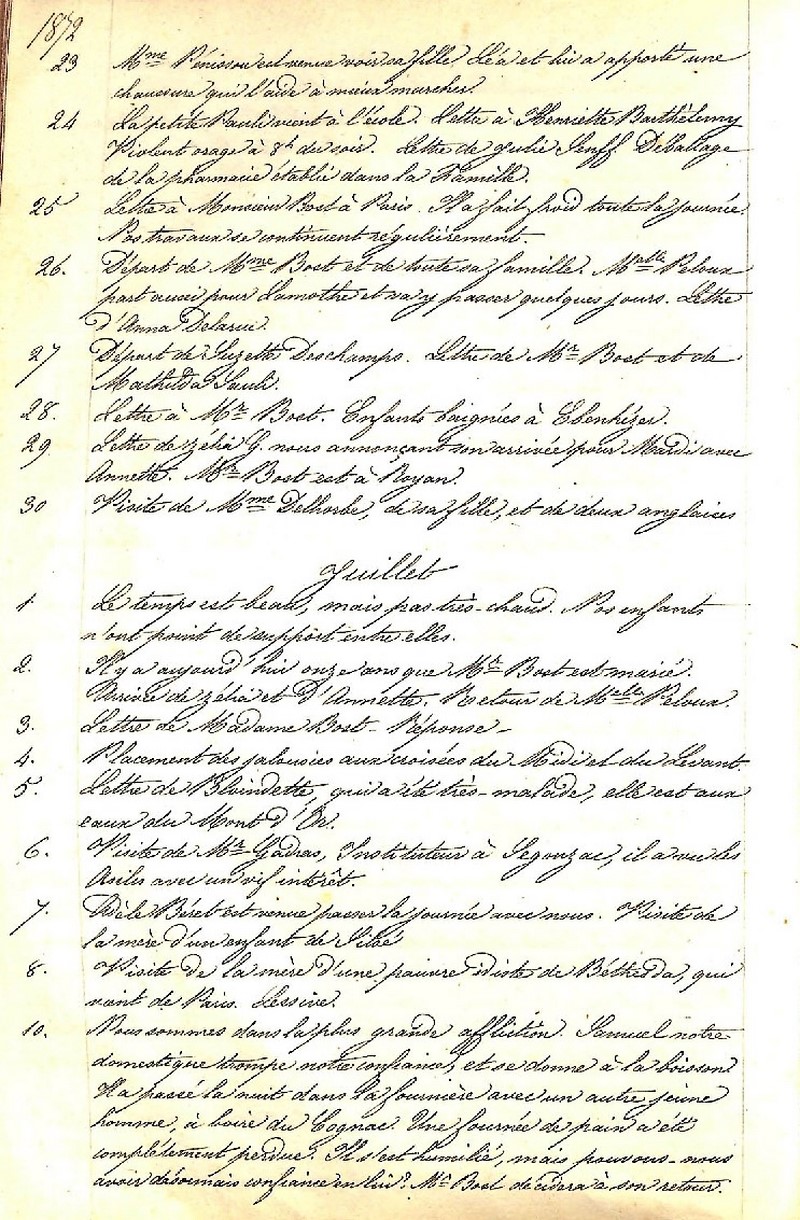 1872
23 Mme Pénisson est venue voir sa fille Léa et lui a apporté une
chaussure qui l'aide à mieux marcher.
24 La petite Pauli vient à l'école. Lettre à Henriette Barthélemy
Violent orage à 8h du soir. Lettre de Julie Senff Débalage
de la pharmacie établie dans la Famille.
25 Lettre à Monsieur Bost à Paris. Il a fait froid toute la journée.
Nos travaux se continuent régulièrement.
26. Départ de Mme Bost et de toute sa famille. Melle Peloux
part aussi pour Lamothe et va y passer quelques jours. Lettre
d'Anna Delarue.
27 Départ de Suzette Deschamps. Lettre de Mr Bost et de
Mathilda Pauli.
28. Lettre à Mr Bost. Enfants baignées à Ebenhézer.
29 Lettre de Zélia G. nous annonçant son arrivée pour Mardi avec
Annette. Mr Bost est à Royan.
30 Visite de Mme Delhorbe, de sa fille, et de deux anglaises
Juillet
1 Le temps est beau, mais pas très-chaud. Nos enfants
n'ont point de support entre elles.
2. Il y a aujourd'hui onze ans que Mr Bost est marié.
Arrivée de Zélia et d'Annette. Retour de Melle Peloux.
3. Lettre de Madame Bost - Réponse -
4. Placement des jalousies aux croisées du Midi et du Levant.
5. Lettre de Blaindette, qui a été très-malade, elle est aux
eaux du Mont d'Or.
6. Visite de Mr Gadras, Instituteur à Segonzac, il a vu les
Asiles avec un vif intérêt.
7. Adèle Béret est venue passer la journée avec nous. Visite de
la mère d'un enfant de Siloé
8. Visite de la mère d'une pauvre idiote de Béthesda, qui
vient de Paris. Lessive.
10. Nous sommes dans la plus grande affliction. Samuel notre
domestique trompe notre confiance, et se donne à la boisson
Il a passé la nuit dans la fournière avec un autre jeune
homme, à boire du Cognac. Une fournée de pain a été
complètement perdue. Il s'est humilié, mais pouvons-nous
avoir désormais confiance en lui? Mr Bost décidera à son retour.